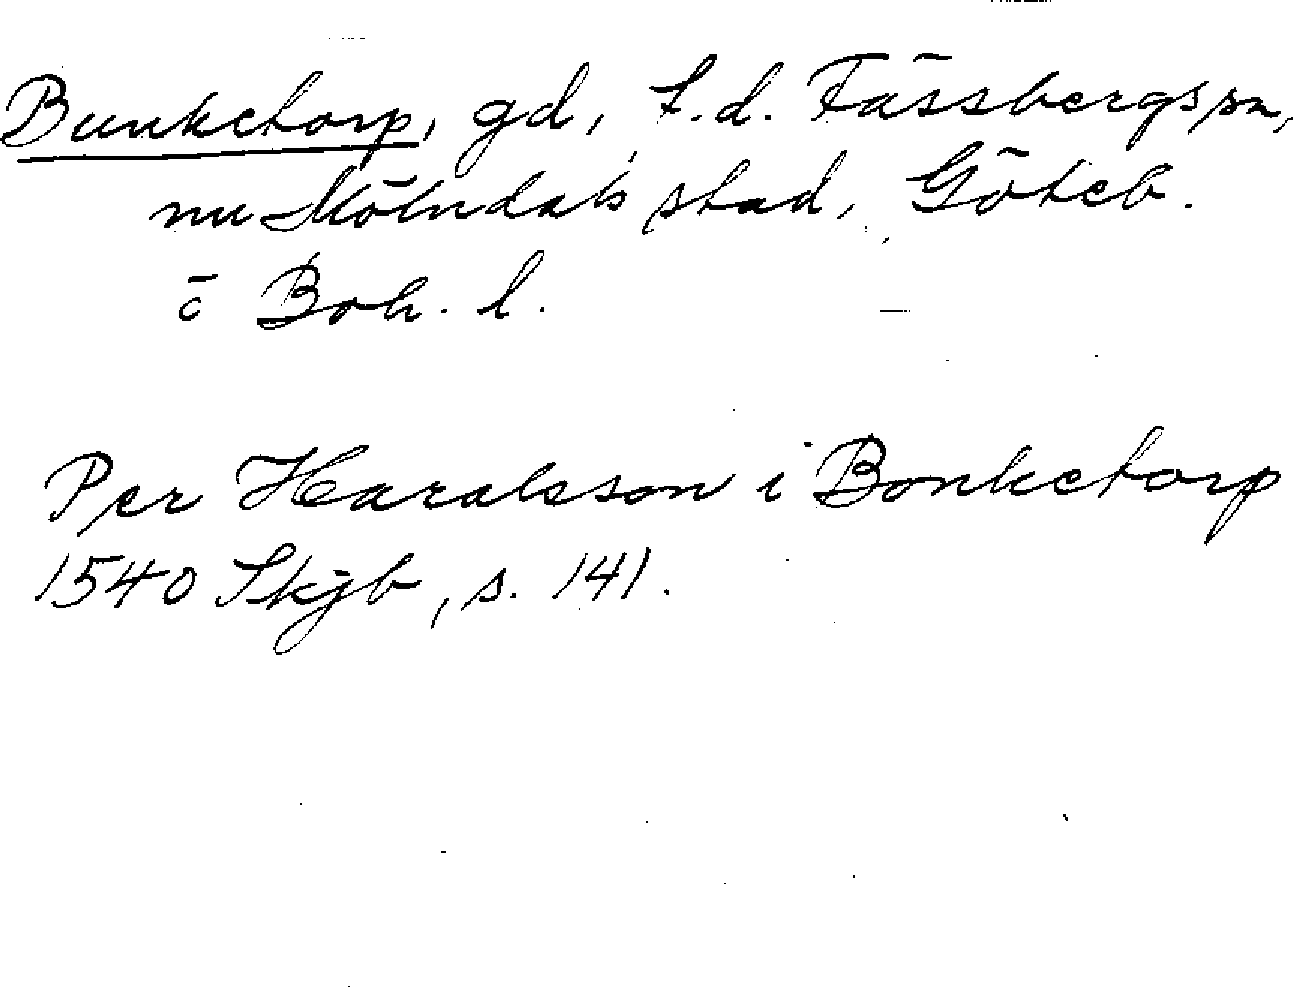 Bunketorp, gd, f.d. Fässbergs sn,
nu Mölndals stad, Göteb.
o Boh. l.
Per Haralsson i Bonketorp
1540 Skjb, s. 141.